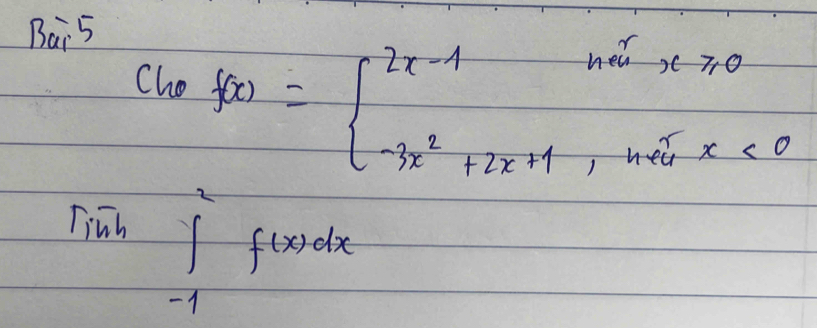 Bài 5
Cho f(x) = { 2x - 1 nếu x ⩾ 0
-3x² + 2x + 1 , nếu x < 0
Tính ∫₋₁² f(x) dx